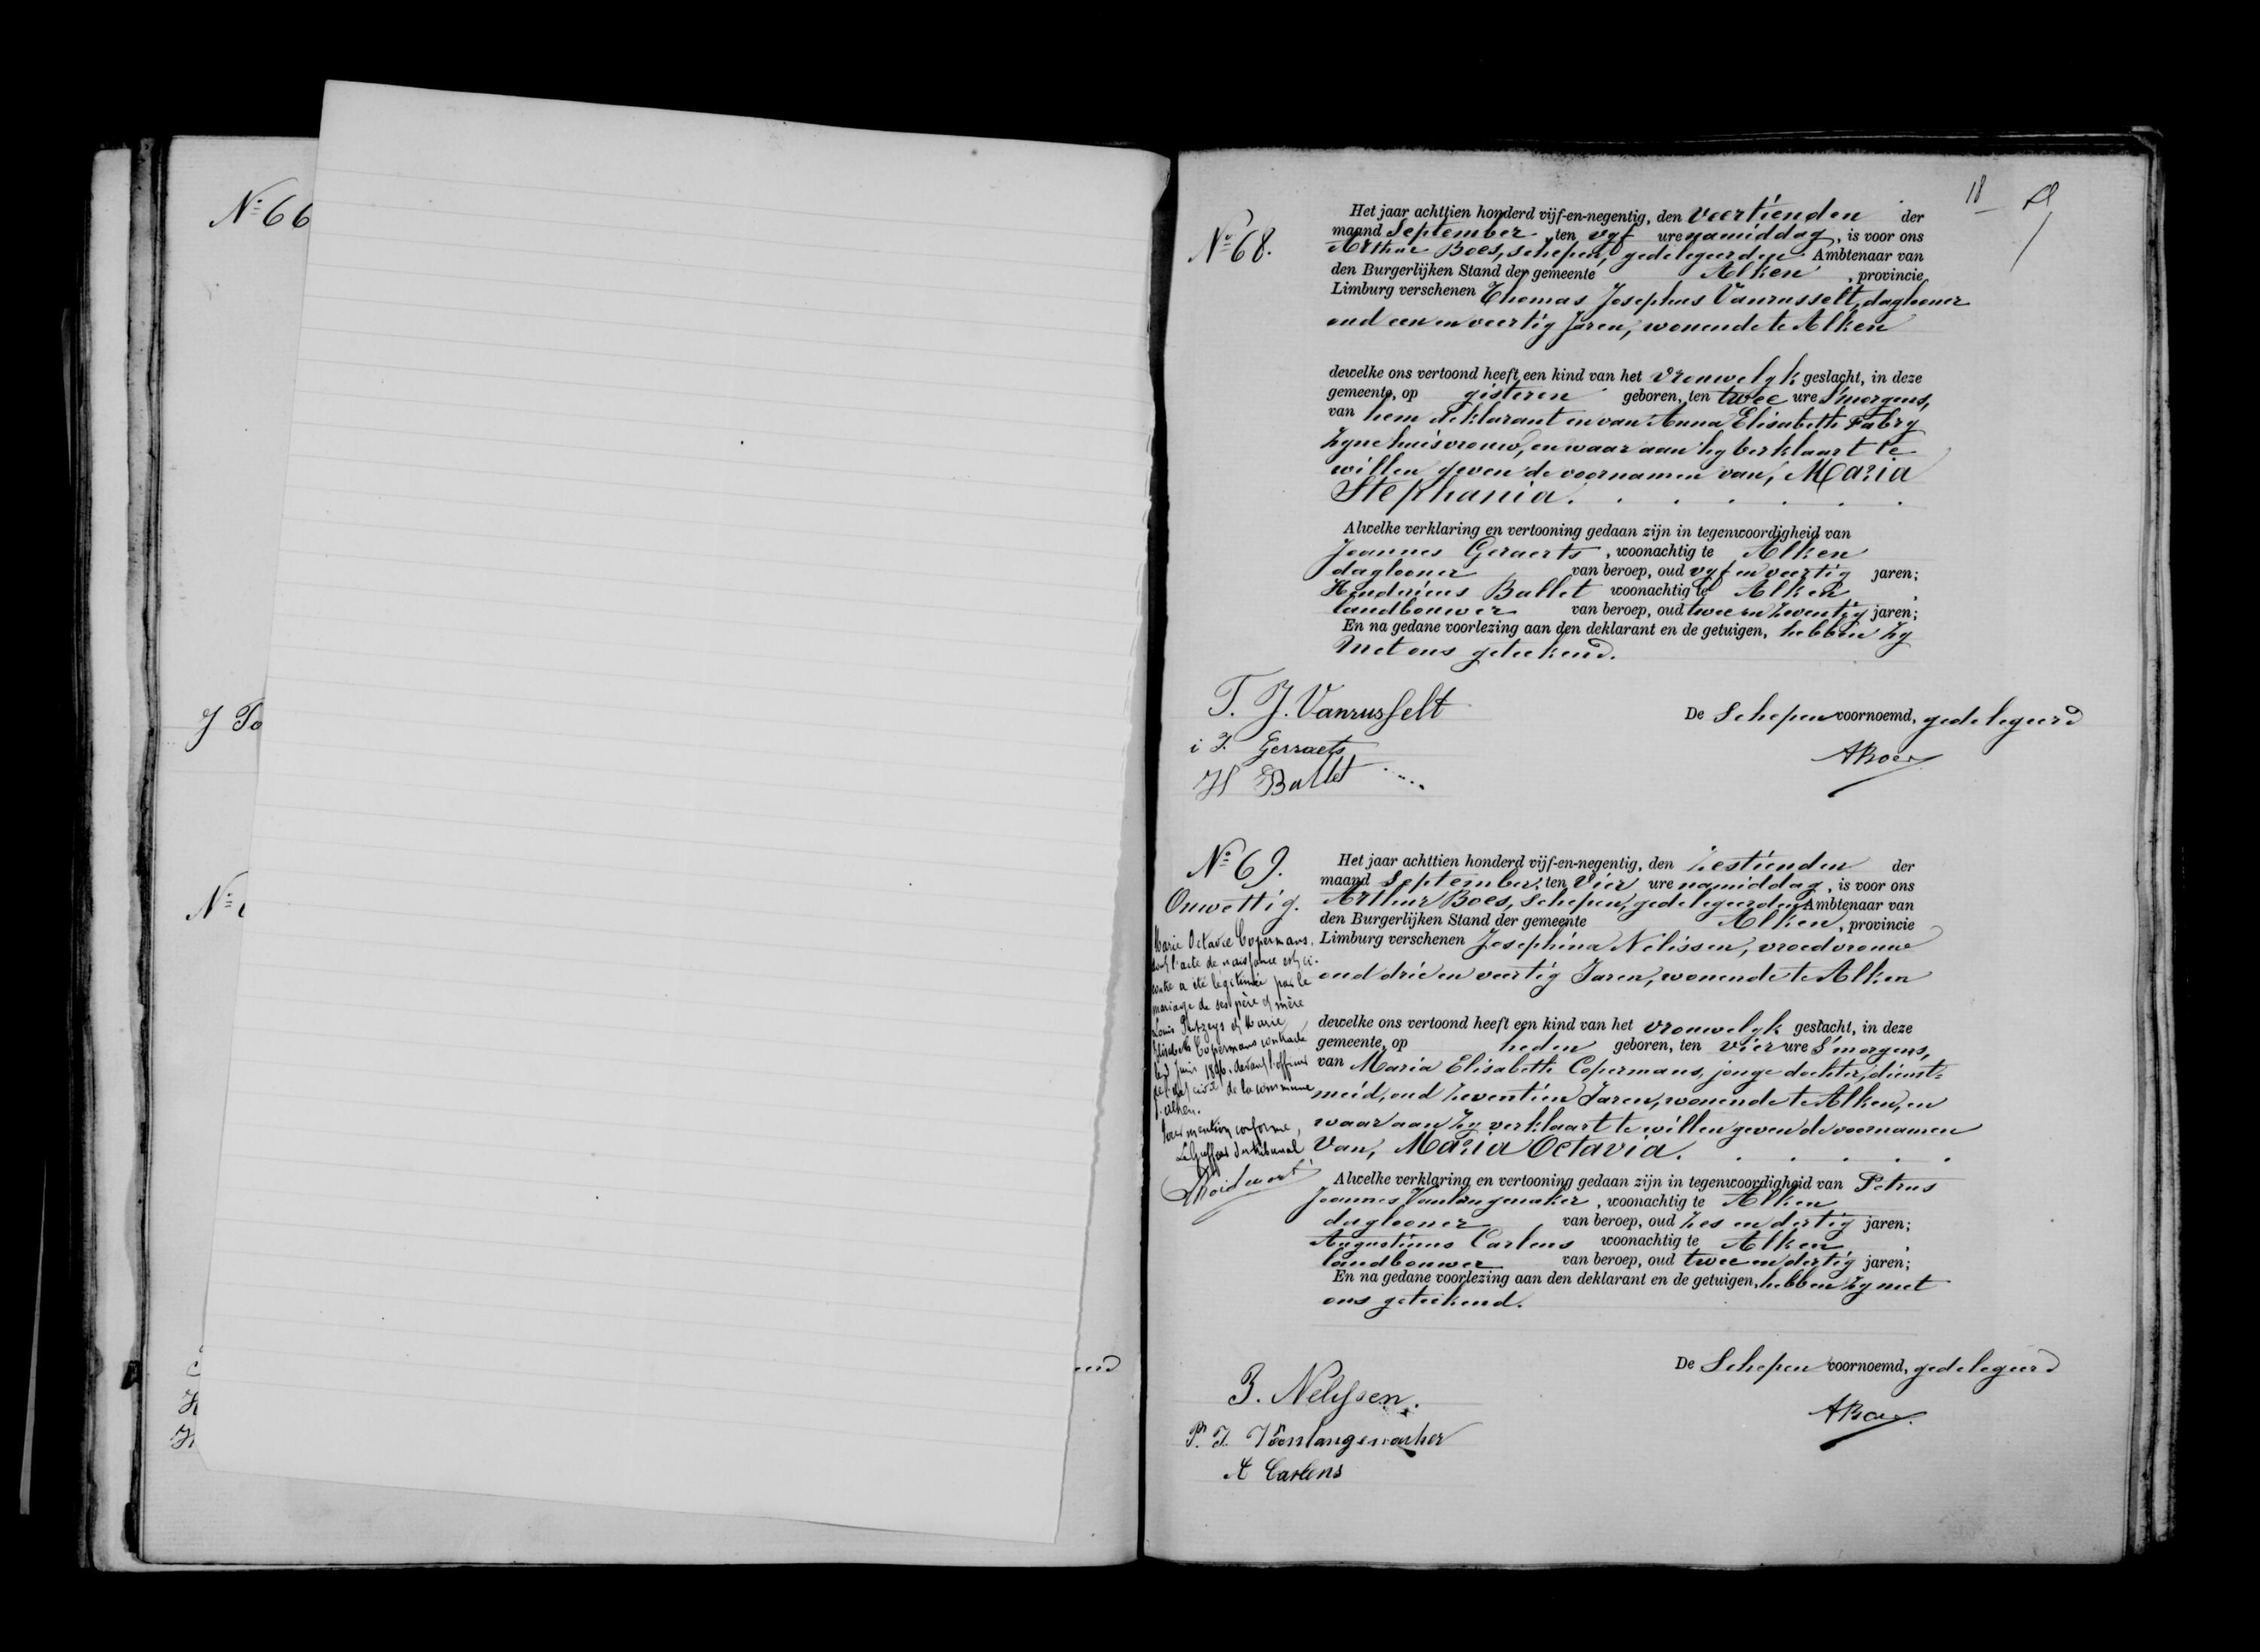 Nº 66
J To
Nº
eerd
18
Nº 68.
Het jaar achttien honderd vijf-en-negentig, den veertienden der
maand September ten vyf ure namiddag, is voor ons
Arthur Boes, schepen, gedelegeerden Ambtenaar van
den Burgerlijken Stand der gemeente Alken, provincie
Limburg verschenen Thomas Josephus Vanrusselt, daglooner
oud een en veertig Jaren, wonende te Alken
dewelke ons vertoond heeft een kind van het vrouwelyk geslacht, in deze
gemeente, op gisteren geboren, ten twee ure s'morgens,
van hem deklarant en van Anna Elisabeth Fabry
zyne huisvrouw, en waar aan hy verklaart te
willen geven de voornamen van, Maria
Stephania.
Alwelke verklaring en vertooning gedaan zijn in tegenwoordigheid van
Joannes Geraerts, woonachtig te Alken
daglooner van beroep, oud vyf en veertig jaren;
Hendricus Ballet woonachtig te Alken,
landbouwer van beroep, oud twee en zeventig jaren;
En na gedane voorlezing aan den deklarant en de getuigen, hebben zy
met ons geteekend.
T. J. Vanrusselt
De Schepen voornoemd, gedelegeerd
i J. Gerraets
ABoes
H Ballet
Nº 69.
Onwettig.
Het jaar achttien honderd vijf-en-negentig, den zestienden der
maand September, ten Vier ure namiddag, is voor ons
Arthur Boes, Schepen, gedelegeerden Ambtenaar van
den Burgerlijken Stand der gemeente Alken, provincie
Limburg verschenen Josephina Nelissen, vroedvrouw
oud drie en veertig Jaren, wonende te Alken
dewelke ons vertoond heeft een kind van het vrouwelyk geslacht, in deze
gemeente, op heden geboren, ten vier ure s'morgens,
van Maria Elisabeth Copermans, jonge dochter, dienst-
meid, oud zeventien Jaren, wonende te Alken, en
waar aan zy verklaart te willen geven de voornamen
Van, Maria Octavia.
Alwelke verklaring en vertooning gedaan zijn in tegenwoordigheid van Petrus
Joannes Vanlangenaker, woonachtig te Alken
daglooner van beroep, oud zes en dertig jaren;
Augustinus Carlens woonachtig te Alken,
landbouwer van beroep, oud twee en dertig jaren;
En na gedane voorlezing aan den deklarant en de getuigen, hebben zy met
ons geteekend.
Marie Octavie Copermans,
dont l'acte de naissance est ci-
contre a été légitimée par le
mariage de ses père et mère
Louis et Marie
Elisabeth Copermans contracté
le juin 1896 devant l'officier
de l'état civil de la commune
d'Alken.
Pour mention conforme,
Le Greffier du tribunal,
De Schepen voornoemd, gedelegeerd
J. Nelissen.
ABoes
P. J. Vanlangenacker
A Carlens